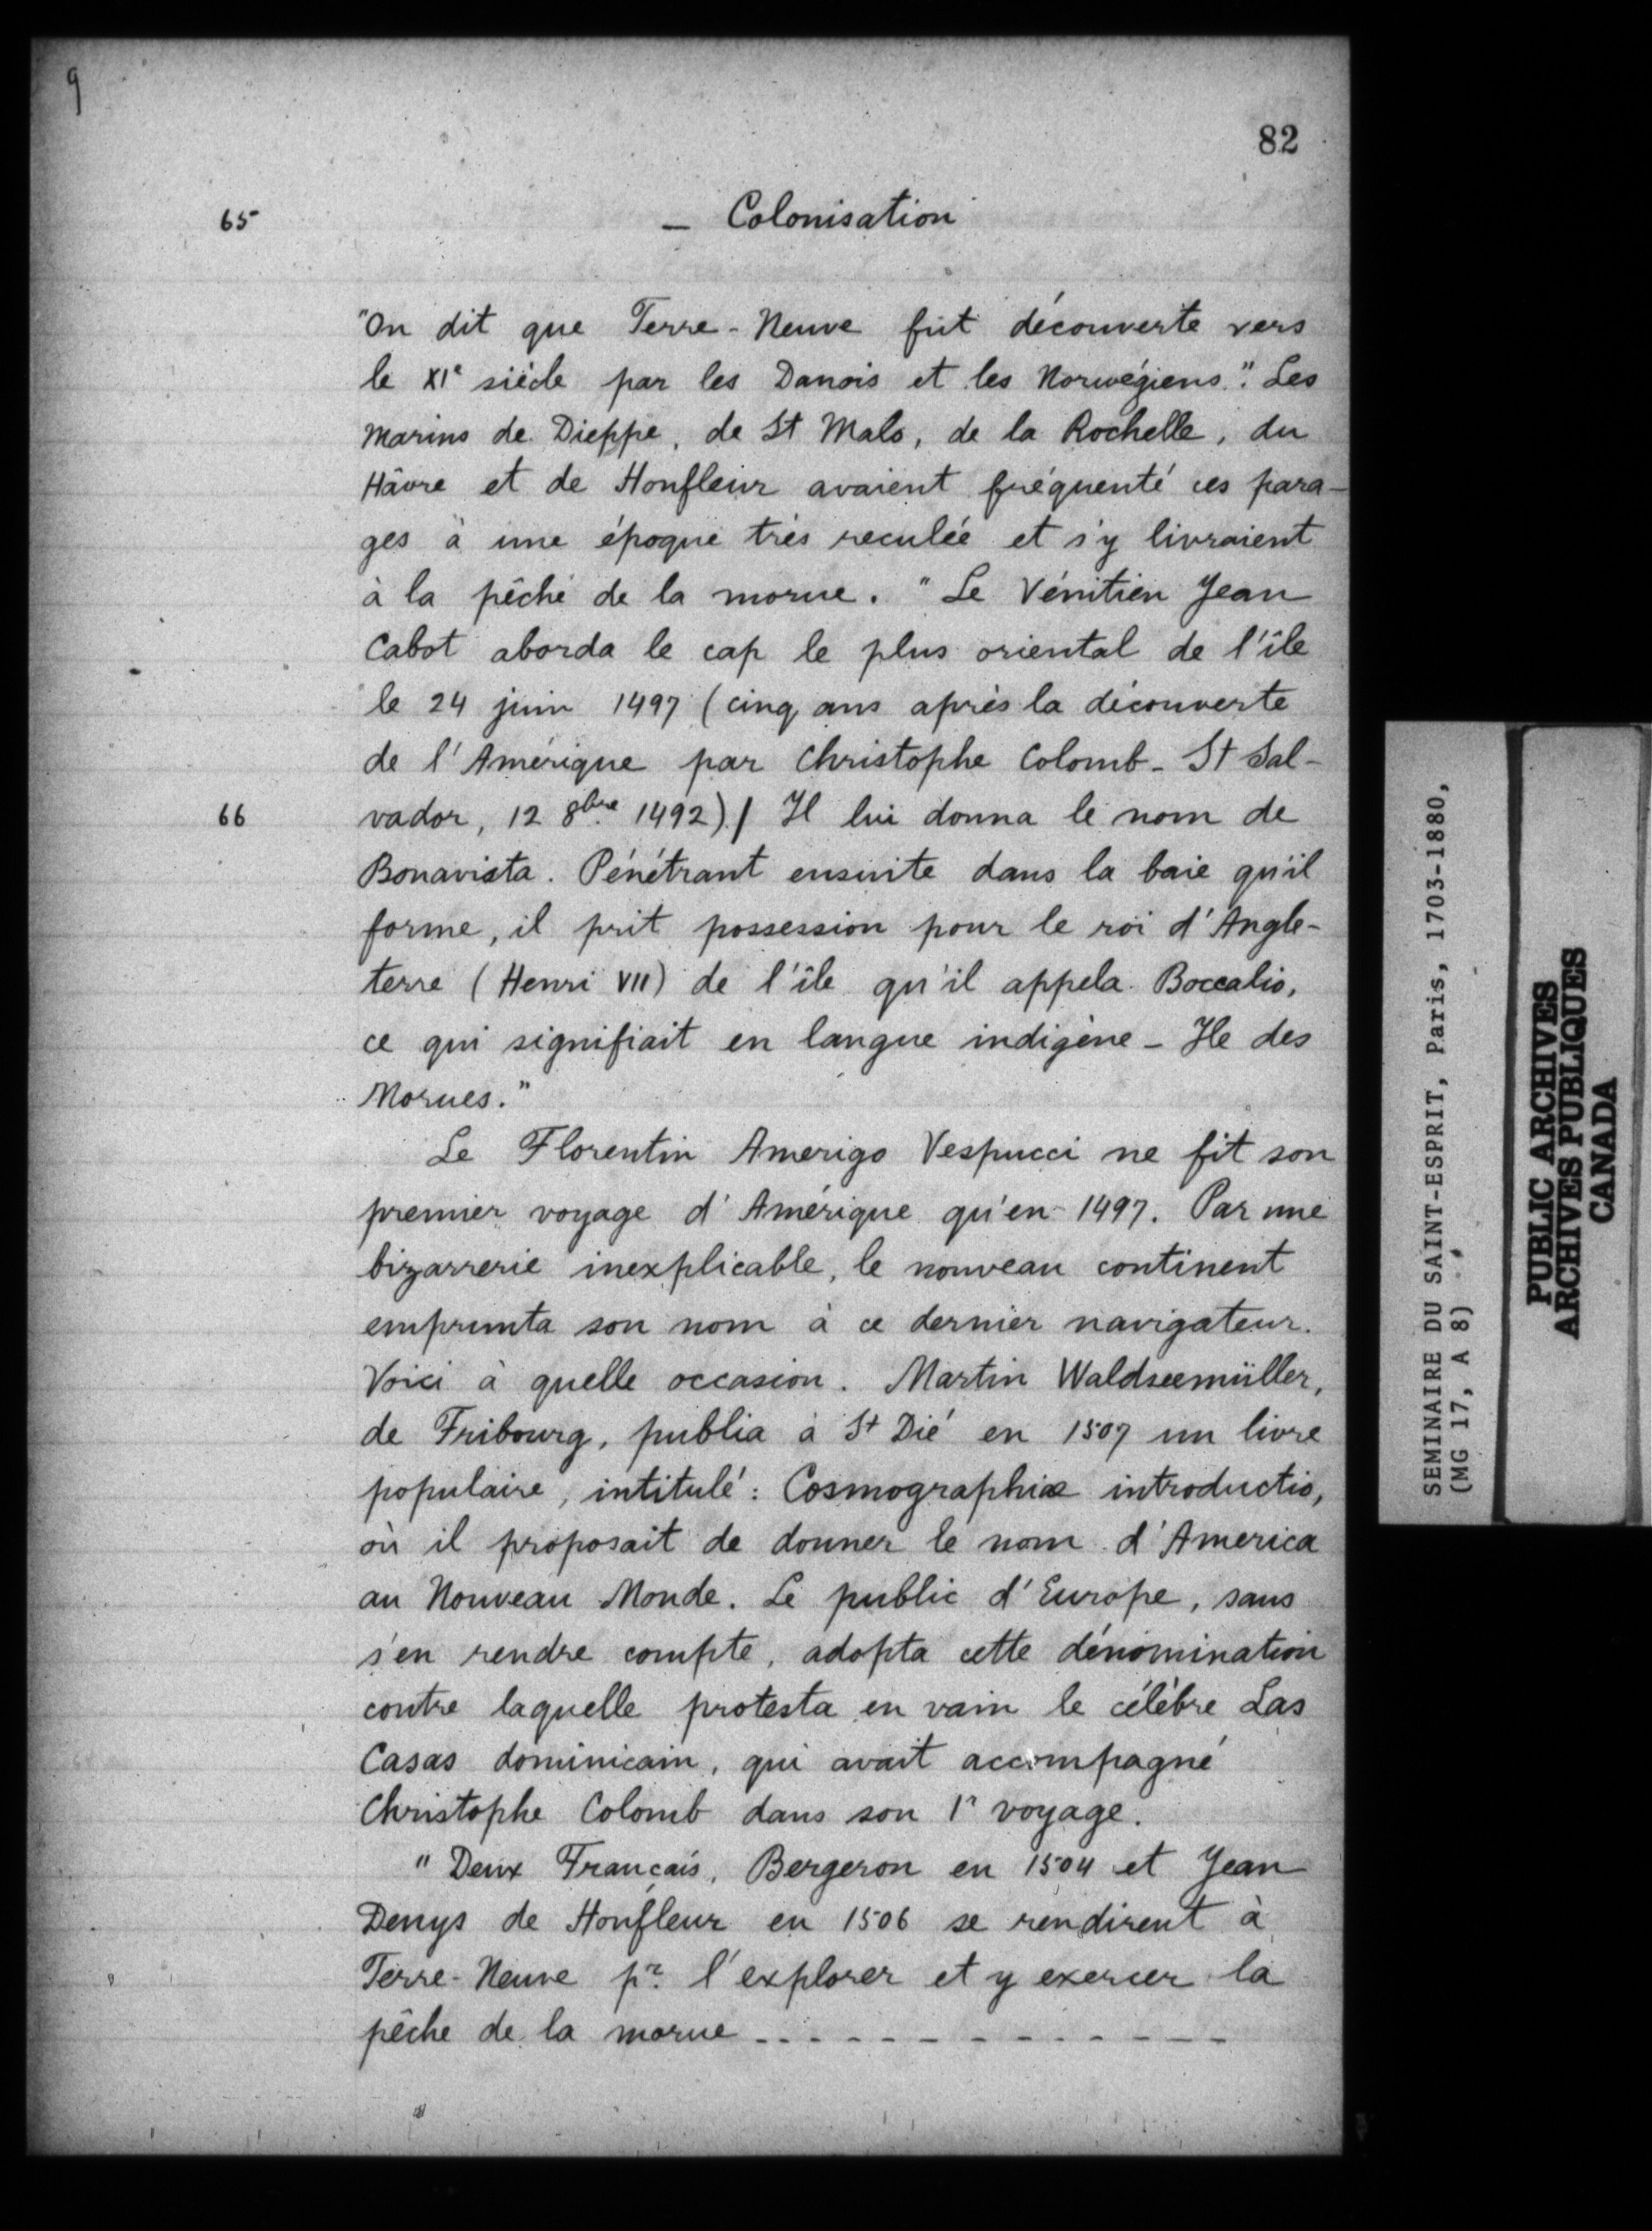 9
82
65
— Colonisation
"On dit que Terre-Neuve fut découverte vers
le XIe siècle par les Danois et les Norwégiens." Les
marins de Dieppe, de St Malo, de la Rochelle, du
Hâvre et de Honfleur avaient fréquenté ces para-
ges à une époque très reculée et s'y livraient
à la pêche de la morue. "Le Vénitien Jean
Cabot aborda le cap le plus oriental de l'île
le 24 juin 1497 (cinq ans après la découverte
de l'Amérique par Christophe Colomb - St Sal-
66
vador, 12 8bre 1492)./ Il lui donna le nom de
Bonavista. Pénétrant ensuite dans la baie qu'il
forme, il prit possession pour le roi d'Angle-
terre (Henri VII) de l'île qu'il appela Boccalio,
ce qui signifiait en langue indigène - Ile des
Morues."
Le Florentin Amerigo Vespucci ne fit son
premier voyage d'Amérique qu'en 1497. Par une
bizarrerie inexplicable, le nouveau continent
emprunta son nom à ce dernier navigateur.
Voici à quelle occasion. Martin Waldseemüller,
de Fribourg, publia à St Dié en 1507 un livre
populaire, intitulé: Cosmographiæ introductio,
où il proposait de donner le nom d'America
au Nouveau Monde. Le public d'Europe, sans
s'en rendre compte, adopta cette dénomination
contre laquelle protesta en vain le célèbre Las
Casas dominicain, qui avait accompagné
Christophe Colomb dans son 1r voyage.
"Deux Français, Bergeron en 1504 et Jean
Denys de Honfleur en 1506 se rendirent à
Terre-Neuve pr l'explorer et y exercer la
pêche de la morue - - - - - - - - - - - -
SEMINAIRE DU SAINT-ESPRIT, Paris, 1703-1880,
(MG 17, A 8)
PUBLIC ARCHIVES
ARCHIVES PUBLIQUES
CANADA